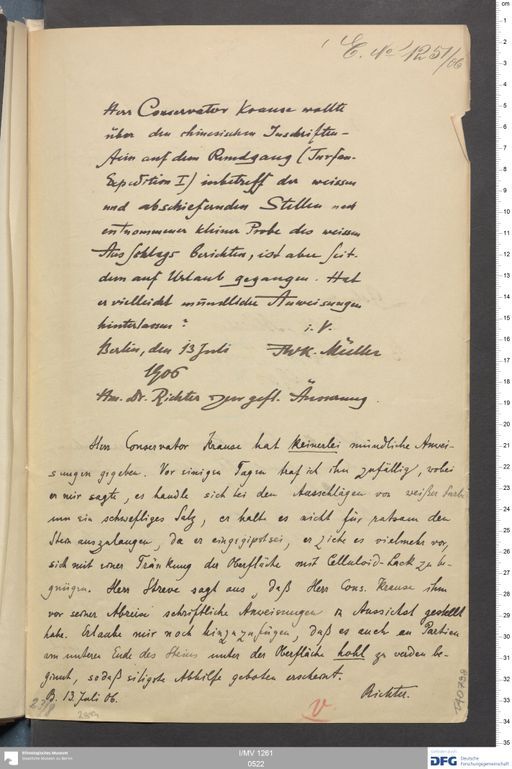 E. No 1251/06
Herr Conservator Krause wollte
über den chinesischen Inschriften-
stein auf dem Rundgang (Turfan-
Expedition I) inbetreff der weissen
und abschiefernden Stellen nach
entnommener kleiner Probe des weissen
Ausschlags berichten, ist aber seit-
dem auf Urlaub gegangen. Hat
er vielleicht mündliche Anweisungen
hinterlassen?
i. V.
Berlin, den 13 Juli FWK. Müller
1906
Hrn. Dr. Richter zur gefl. Äusserung.
Herr Conservator Krause hat keinerlei mündliche Anwei-
sungen gegeben. Vor einigen Tagen traf ich ihn zufällig, wobei
er mir sagte, es handle sich bei den Ausschlägen von weißer Farbe
um ein schwefliges Salz, er halte es nicht für ratsam den
Stein auszulaugen, da er eingegipst sei, er ziehe es vielmehr vor,
sich mit einer Tränkung der Oberfläche mit Celluloid-Lack zu be-
gnügen. Herr Strewe sagt aus, daß Herr Cons. Krause ihm
vor seiner Abreise schriftliche Anweisungen in Aussicht gestellt
habe. Erlaube mir noch hinzuzufügen, daß es auch an Partien
am unteren Ende des Steins unter der Oberfläche hohl zu werden be-
ginnt, sodaß eiligste Abhilfe geboten erscheint.
B. 13. Juli 06. Richter.
I/MV 1261
0522
Ethnologisches Museum
Staatliche Museen zu Berlin
DFG Deutsche
Forschungsgemeinschaft